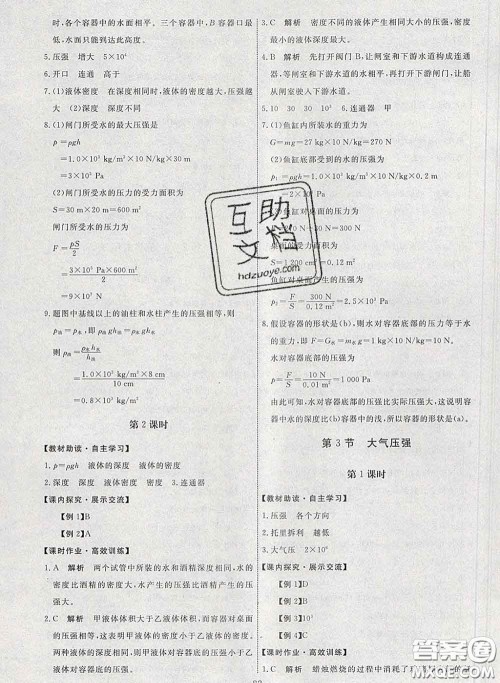 时，各个容器中的水面相平。三个容器中，B容器口最
低，水面只能到达此高度。
5. 压强 增大 5×10⁴
6. 开口 连通 高于
7. (1)液体密度 在深度相同时，液体的密度越大，压强
越大 (2)深度 深度不同
8. (1)闸门所受水的最大压强是
p=ρgh
=1.0×10³ kg/m³×10 N/kg×30 m
=3×10⁵ Pa
(2)闸门所受水的压力的受力面积为
S=30 m×20 m=600 m²
闸门所受水的压力为
F=pS/2
=3×10⁵ Pa×600 m²/2
=9×10⁷ N
9. 题图中基线以上的油柱和水柱产生的压强相等，则
p油=p水，即ρ油gh油=ρ水gh水
则ρ油=ρ水h水/h油
=1.0×10³ kg/m³×8 cm/10 cm
=0.8×10³ kg/m³
第2课时
【教材助读·自主学习】
1. p=ρgh 液体的深度 液体的密度
2. 深度 深度 深度 密度 密度 3. 连通器
【课内探究·展示交流】
【例1】B
【例2】A
【课时作业·高效训练】
1. B 解析 两个试管中所装的水和酒精深度相同，水的密
度比酒精的密度大，水产生的压强比酒精产生的压强
大。
2. C 解析 甲液体体积大于乙液体体积，而容器对桌面
的压强相等，这表明甲液体的密度小于乙液体的密度，
两种液体的深度相同，因此甲液体的压强小于乙液体
的压强。
3. C 解析 不同的液体产生相同的压强，密度最小的
液体深度最大。
4. B 解析 先打开阀门B，让闸室和下游水道构成连通
器，等闸室和下游水道的水相平，再打开下游闸门，让船
从闸室驶入下游水道。
5. 10 30 30 10⁵ 6. 连通器 甲
7. (1)鱼缸内所装水的重力为
G=mg=27 kg×10 N/kg=270 N
(2)鱼缸底部受到的水的压强为
p₁=ρgh=1.0×10³ kg/m³×10 N/kg×0.2 m
=2×10³ Pa
(3)鱼缸对桌面的压力为
桌面的受力面积为
S=1 200 cm²=0.12 m²
鱼缸对桌面的压强为
p₂=F/S=300 N/0.12 m²=2.5×10³ Pa
8. 假设容器的形状是(b)，则水对容器底部的压力等于水
的重力，即F=G水=m水g=1 kg×10 N/kg=10 N
p=F/S=10 N/0.01 m²=1 000 Pa
由此可知，水对容器底部的压强比实际压强大，说明容
器中水的深度比(b)容器中的浅，所以其形状是(a)。
第3节 大气压强
第1课时
【教材助读·自主学习】
1. 压强 各个方向
2. 托里拆利 越低
3. 大气压 2×10⁶
【课内探究·展示交流】
【例1】D
【例2】D
【例3】10³
【例4】C
【课时作业·高效训练】
1. C 解析 蜡烛燃烧的过程中消耗了
互助
文档
hdzuoye.com